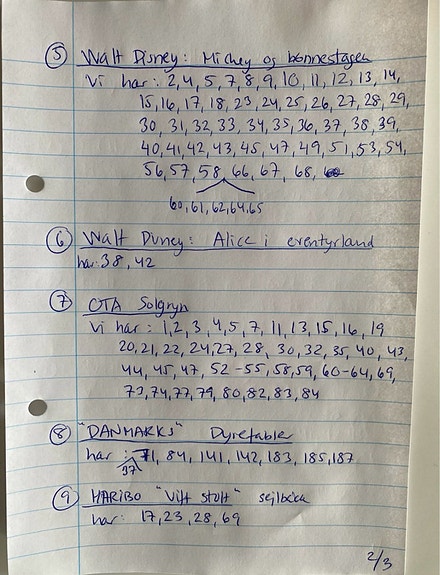 ⑤ Walt Disney: Mickey og bønnestagen
Vi har: 2, 4, 5, 7, 8, 9, 10, 11, 12, 13, 14,
15, 16, 17, 18, 23, 24, 25, 26, 27, 28, 29,
30, 31, 32, 33, 34, 35, 36, 37, 38, 39,
40, 41, 42, 43, 45, 47, 49, 51, 53, 54,
56, 57, 58, 66, 67, 68,
60, 61, 62, 64, 65
⑥ Walt Disney: Alice i eventyrland
har: 38, 42
⑦ OTA Solgryn
Vi har: 1, 2, 3, 4, 5, 7, 11, 13, 15, 16, 19
20, 21, 22, 24, 27, 28, 30, 32, 35, 40, 43,
44, 45, 47, 52-55, 58, 59, 60-64, 69,
73, 74, 77, 79, 80, 82, 83, 84
⑧ "DANMARKS" Dyrefabler
har: 71, 84, 141, 142, 183, 185, 187
37
⑨ HARIBO "Vift stolt"
har: 17, 23, 28, 69
2/3